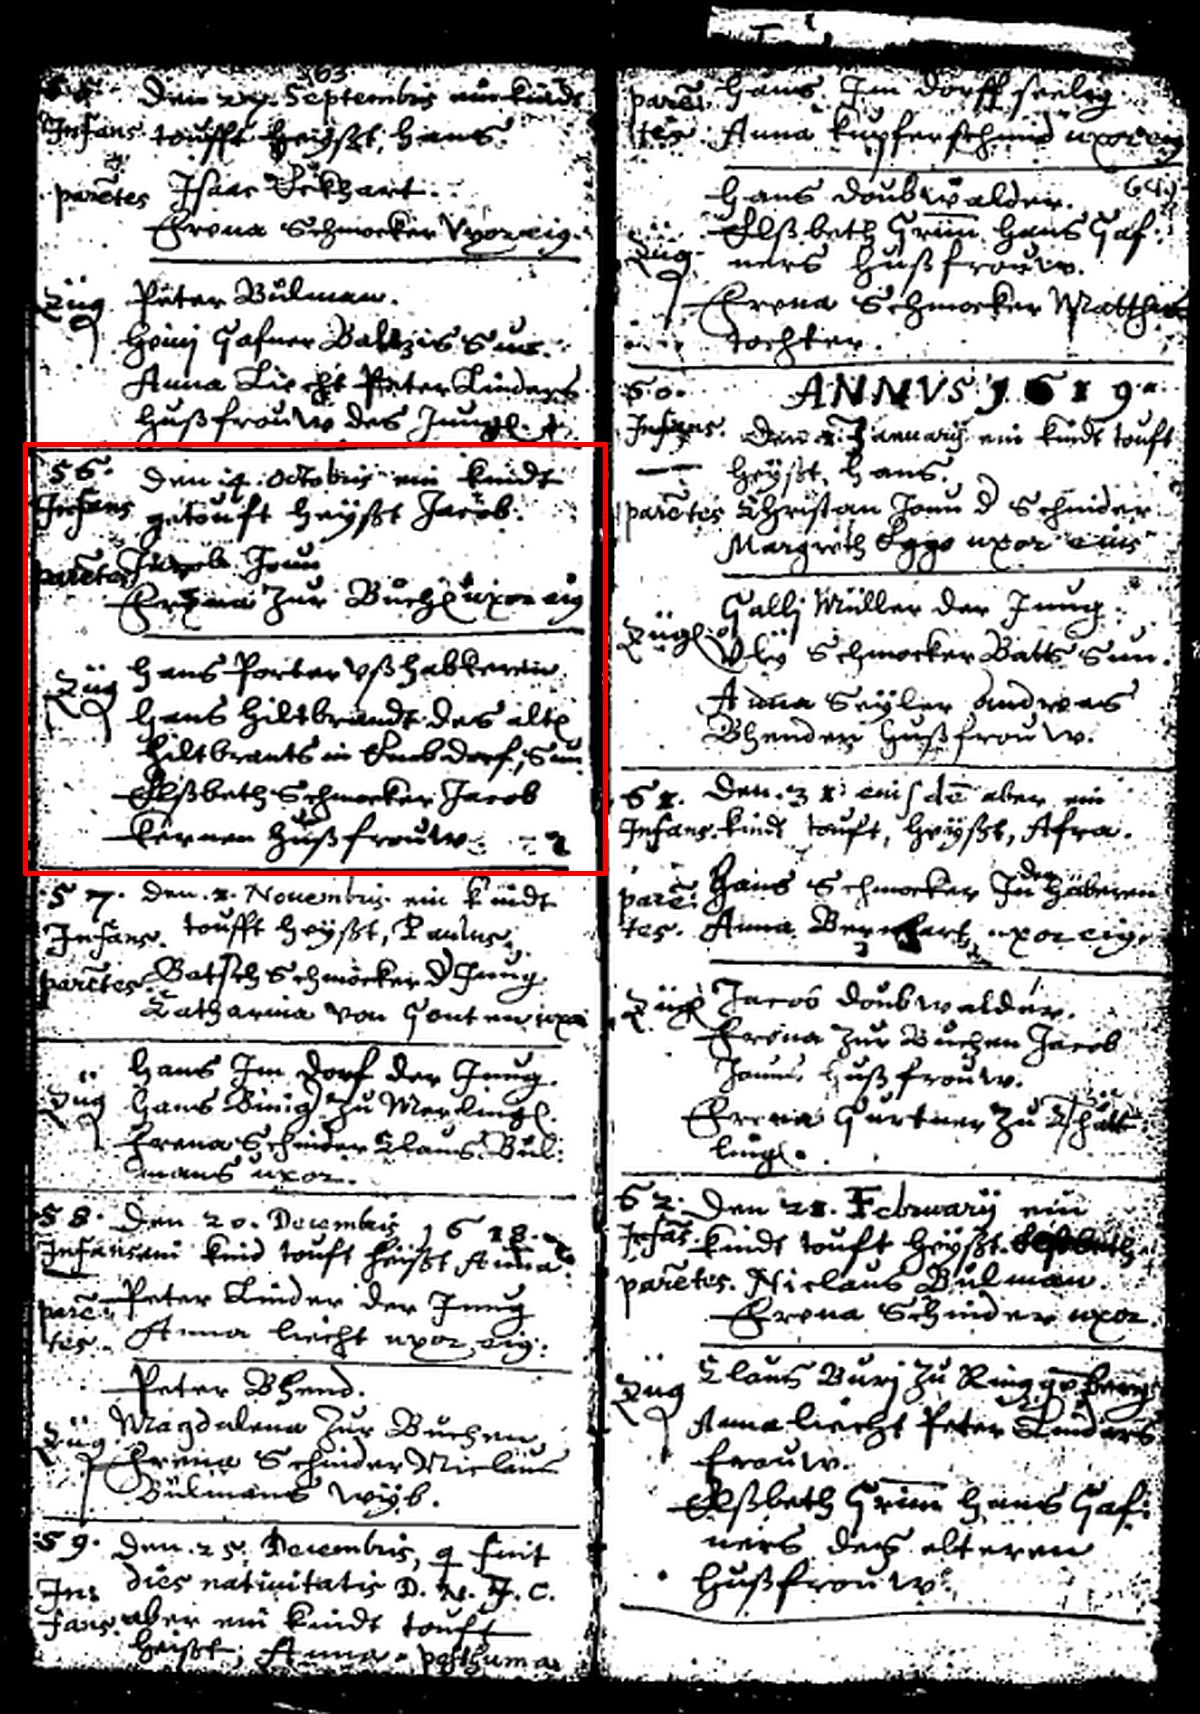 63
Den 27. Septembris ein kindt
Infans toufft heyßt, Hans.
parētes Isaac Eckhart.
Erena Schmocker Vxor eig.
Züg Peter Bülman.
Heini Gafner Baltzis Sun.
Anna Liecht Peter Linders
hußfrouw des Jung
56. Den 14. Octobris ein kindt
Infans getoufft heyßt Jacob.
parētes Jacob Jonn
Erena Zur Buchē uxor eig
Züg Hans Porter vß Habkeren
Hans Hiltbrandt des altē
Hiltbrants in Dorf, Sun
Elßbeth Schmocker Jacob
Kernen hußfrouw.
57. Den 2. Novembris ein kindt
Infans. toufft heyßt, Paulus.
parētes. Batsch Schmocker d Jung.
Catharina von Gonten uxor
Hans Im Dorf der Jung.
Züg Hans zu Merlingē.
Erena Schnider Claus Bül:
mans uxor.
58. Den 20. Decembris 1618.
Infans ein kind touft heißt Anna.
parē: Peter Linder der Jung
tes. Anna liecht uxor eig:
Peter Bhend.
Züg Magdalena Zur Buchen
Erena Schnider Niclaus
Bülmans wyb.
59. Den 25. Decembris, q fuit
In: dies nativitatis D. N. J. C.
fans. aber ein kindt touft
heißt, Anna posthuma
parē: Hans Im Dorff seelig
tes. Anna Kupferschmid uxor eig
64
Hans Doubwalder.
Züg. Elßbeth Grim Hans Gaf:
ners hußfrouw.
Erena Schmocker Matthis
tochter.
60. ANNVS 1619.
Infans. Den 2. Januarij ein kindt touft
heyßt, Hans.
parētes Christan Jonn d Schnider
Margreth Eggo uxor eius
Galli Müller der Jung.
Zügē Vly Schmocker Batts Sun.
Anna Seyler andreas
Bhenden hußfrouw.
61. Den 31 eiusdē aber ein
Infans. kindt touft, heyßt, Afra.
parē: Hans Schmocker In den Haberen
tes. Anna uxor eig.
Zügē Jacob Doubwalder.
Erena Zur Buchen Jacob
Jonns hußfrouw.
Erena Gurtner Zu
lingē.
62. Den 21. Februarij ein
Infās. kindt touft heyßt. Elsbeth
parētes. Niclaus Bülman.
Erena Schnider uxor.
Züg Claus Buri Zu Ringgēberg
Anna liecht Peter Linders
frouw.
Elßbeth Grim Hans Gaf:
ners deß elteren
hußfrouw.